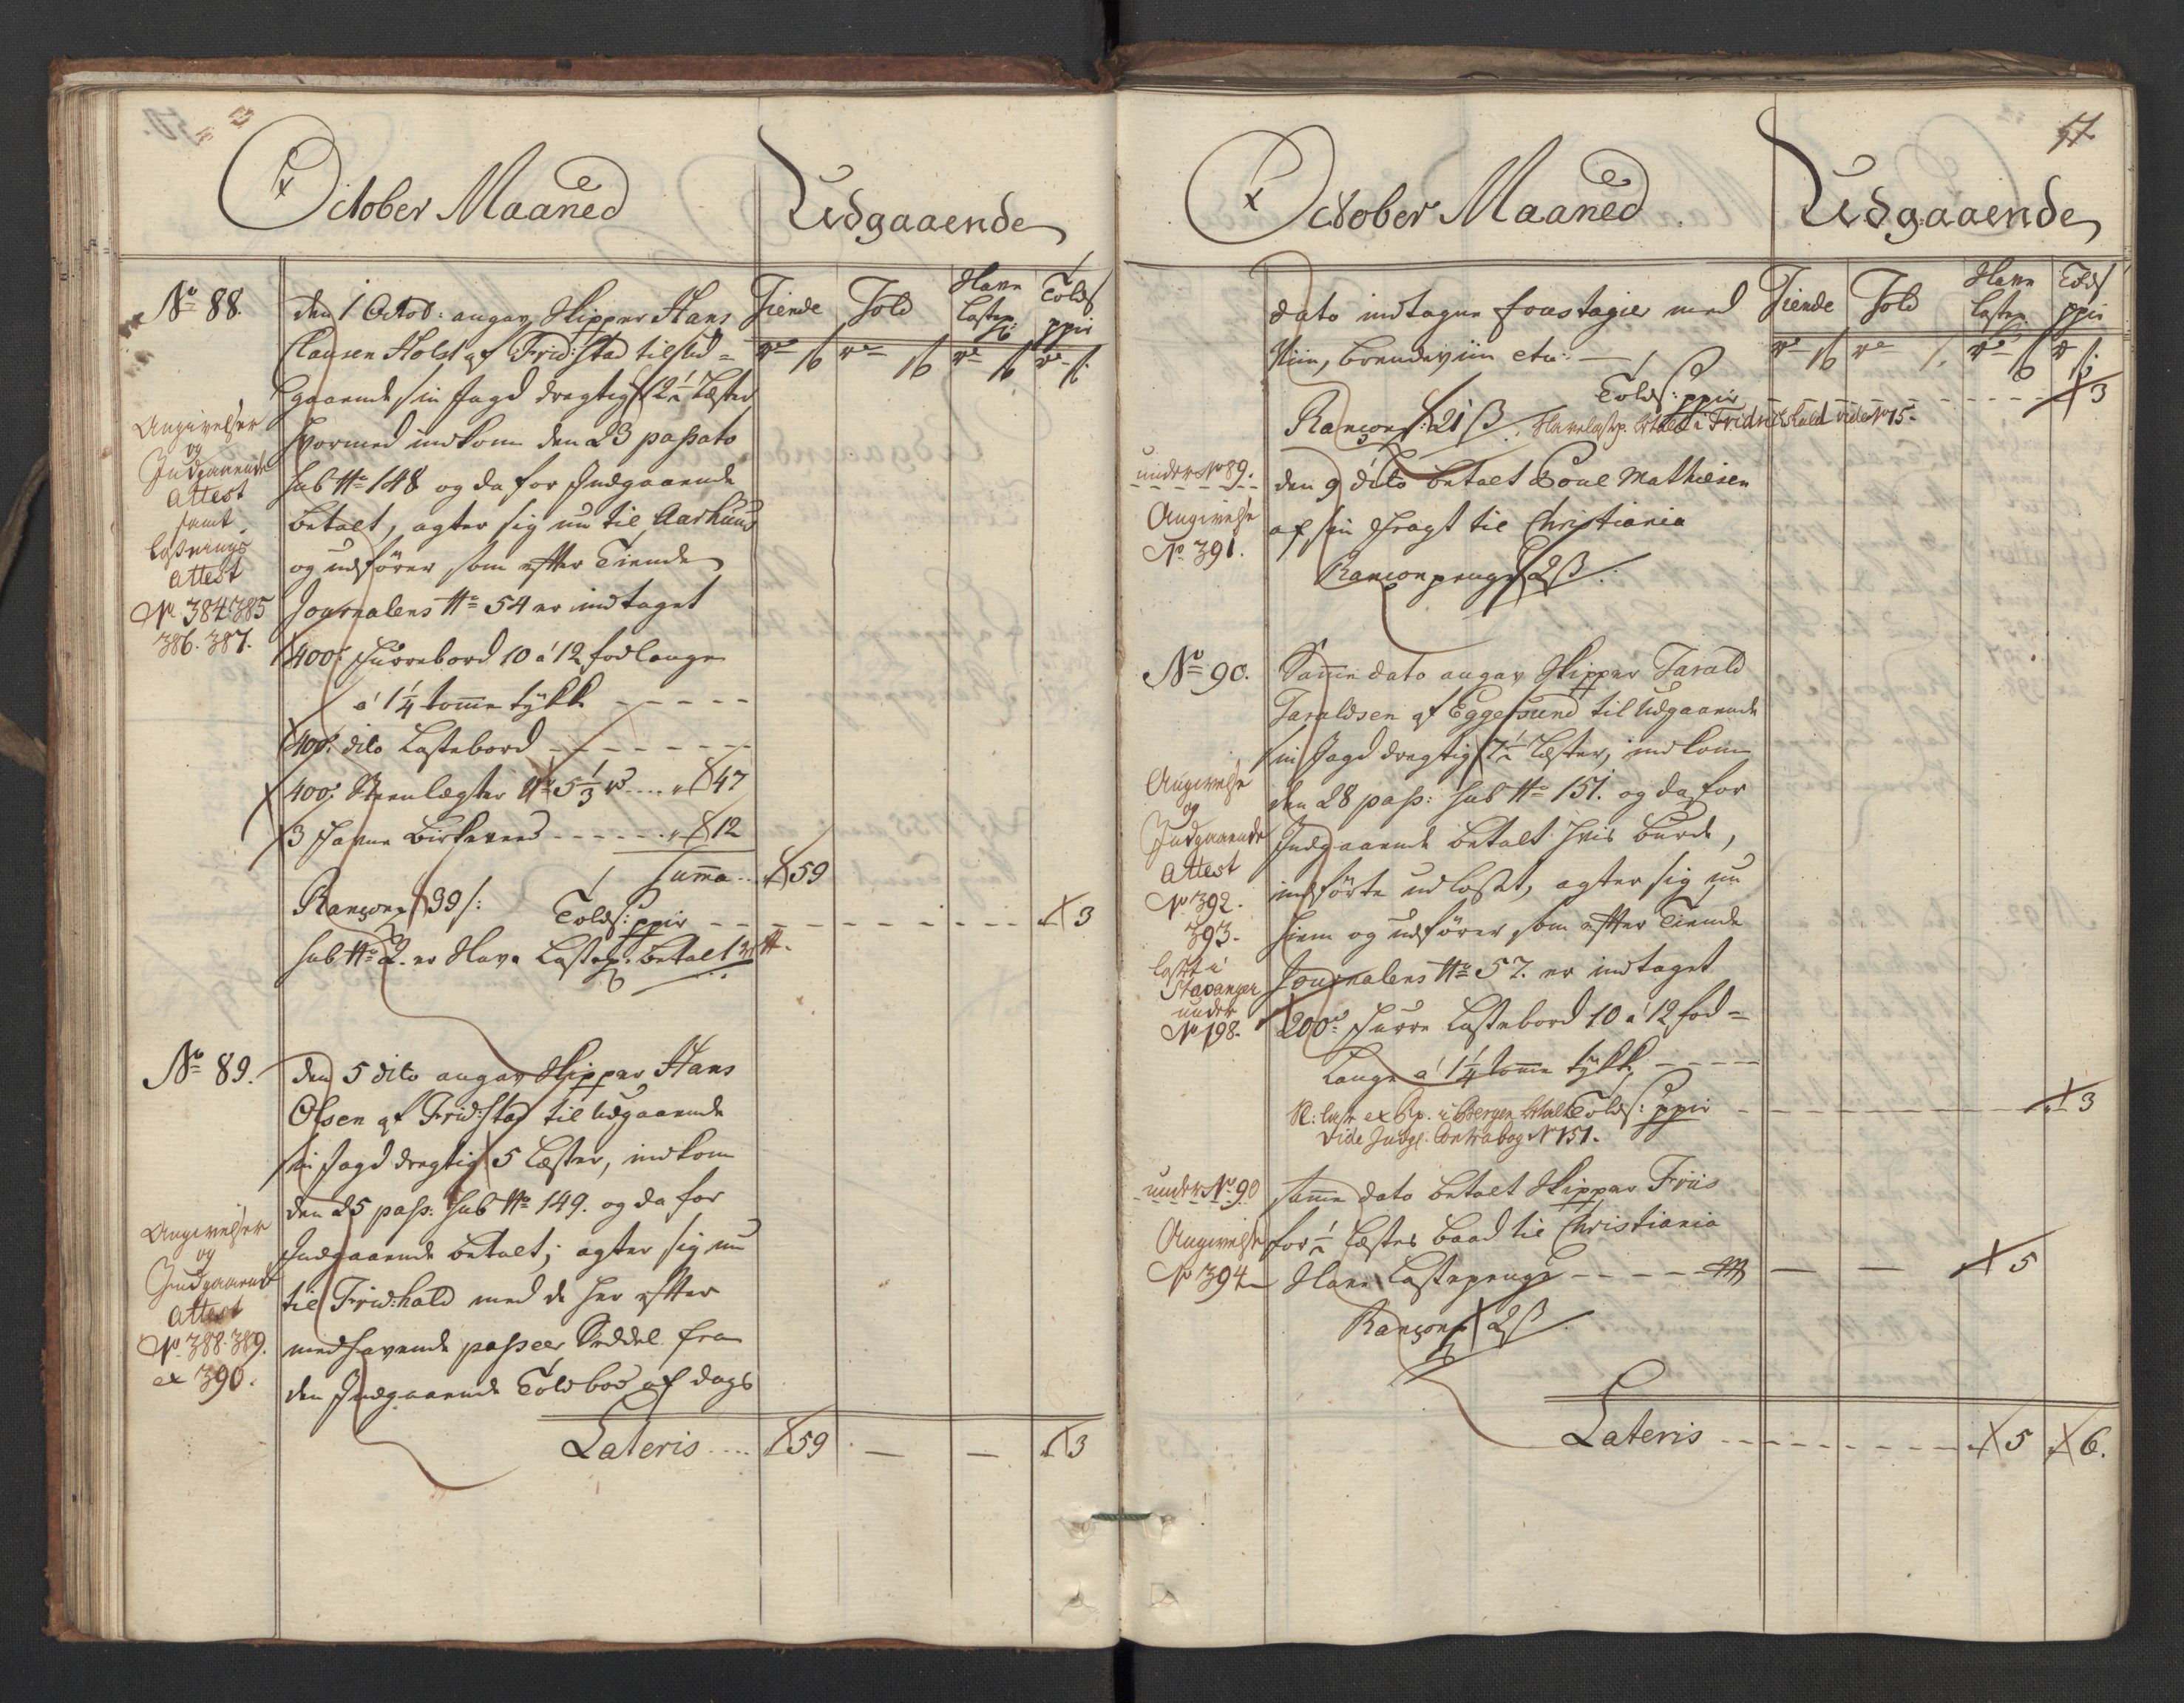 October Maaned
Udgaaende
Tiende
Told
Havne
Lastep:
Told S:
ppir
No 88.
den 1 Octob: angav Skipper Hans
Clausen Holst af Frid:Stad til ud=
gaaende sin Jagd drægtig 12½ Læster
hvormed indkom den 23 passato
sub No 148 og da for Indgaaende
betalt, agter sig nu til Aarhuus
og udfører som efter Tiende
Journalens No 54 er indtaget
Angivelser
og
Indgaaende
Attest
samt
Losnings
Attest
No 384. 385
386. 387.
400. Furrebord 10 a 12 fod lange
a 1¼ tomme tykk - - - - -
400. dito Lastebord - - - - - - -
400. Steenlægter 5⅓ .... " 47
3 Favne Birkeved - - - - - - " 12
Summa .. 59
Ranconp 39 s:
Told S: ppir - - - - - - - - 3
sub No 2. er Havn Lastep. betalt
No 89.
den 5 dito angav Skipper Hans
Olsen af Frid:Stad til udgaaende
sin Jagd drægtig 5 Læster, indkom
den 25 pass: sub No 149. og da for
Indgaaende betalt; agter sig nu
til Frid:hald med de her efter
medhavende passeer Seddel fra
den Indgaaende Toldbod af dags
Angivelser
og
Indgaaende
Attest
No 388. 389.
et 390.
Lateris .... 59 — — 3
57
October Maaned
Udgaaende
Tiende
Told
Havn
Lastep
Told S
ppir
dato indtagne foustagier med
Viin, brendeviin etc: —
Told S: ppir - - - - - 3
Ranconp: 21 s. Havnlastp. betalt i Fridrichshald vide No 15.
under No 89.
Angivelse
No 391.
den 9 dito betalt Poul Mathiesen
af sin Fragt til Christiania
Ranconpenge 2 s.
No 90.
Samme dato angav Skipper Tarald
Taraldsen af Eggersund til Udgaaende
sin Jagd drægtig 7½ Læster, indkom
den 28 pass: sub No 151. og da for
Indgaaende betalt hvis burde,
indførte udlosst, agter sig nu
hiem og udfører som efter Tiende
Journalens No 57. er indtaget
Angivelse
og
Indgaaende
Attest
No 392.
393.
losst i
Stavanger
under
No 198.
200 Furre Lastebord 10 a 12 fod=
Lange a 1¼ tomme tykk - - - -
Told S: ppir - - - - - - 3
i Bergen betalt
vide Indg: Contrabog No 151.
under No 90
Angivelse
No 394
samme dato betalt Skipper Friis
for ½ Læsters baad til Christiania
Havn Lastepenge - - - - — — 5
Ranconp 2 s.
Lateris - - - - - - - - 5 6.